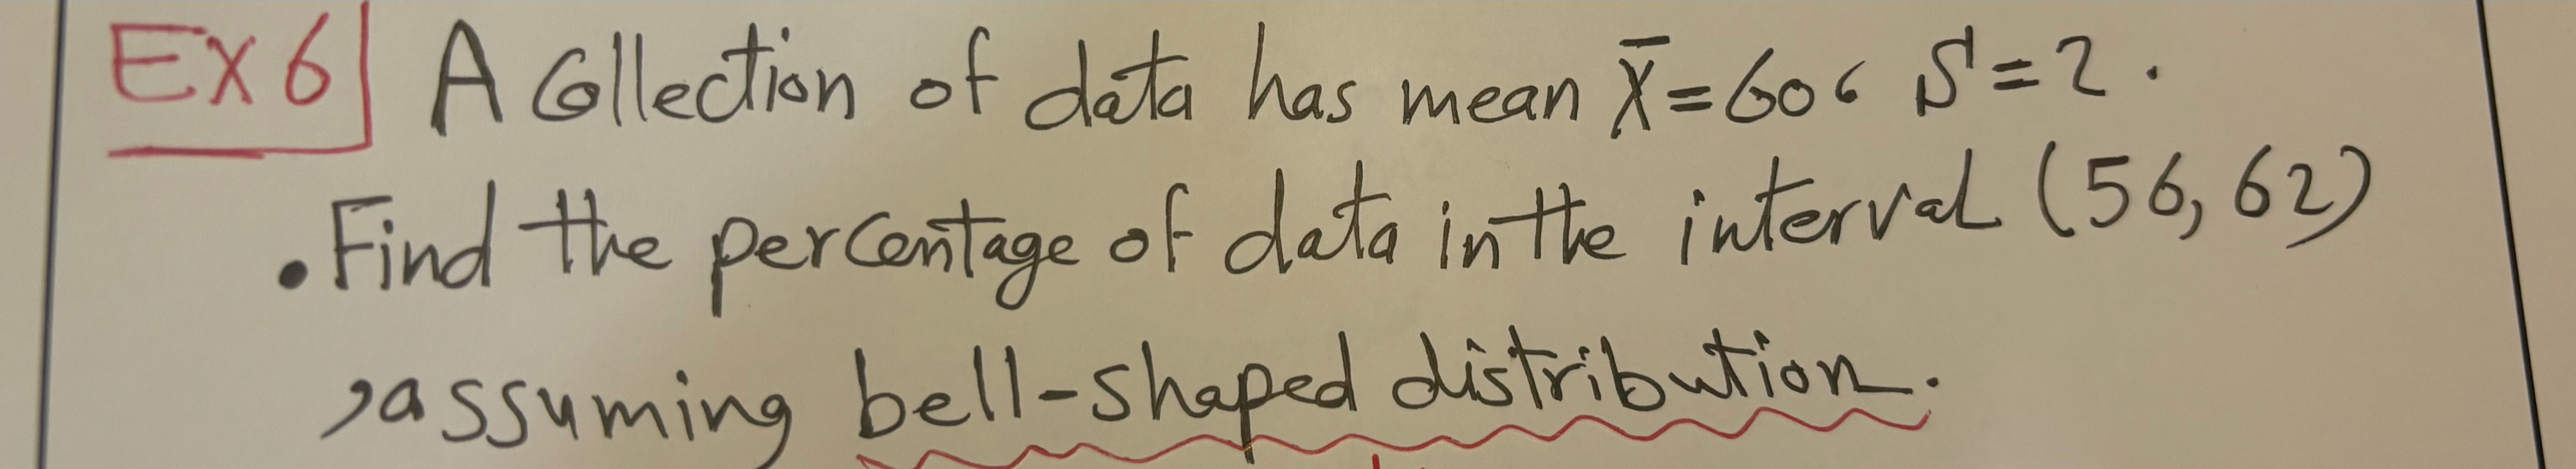 EX6 A Collection of data has mean x̄=60، S=2.
• Find the percentage of data in the interval (56, 62)
, assuming bell-shaped distribution.